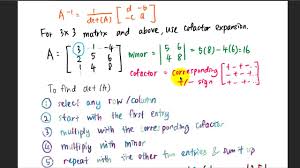 A⁻¹ = 1/det(A) [ d -b
-c a ]
For 3x3 matrix and above, use cofactor expansion.
A = [ 3 1 -4
2 5 6
1 4 8 ]
minor = | 5 6
4 8 | = 5(8) - 4(6) = 16
cofactor = corresponding +/- sign [ + - +
- + -
+ - + ]
To find det(A)
① select any row/column
② start with the first entry
③ multiply with the corresponding cofactor
④ multiply with minor
⑤ repeat with the other two entries & sum it up